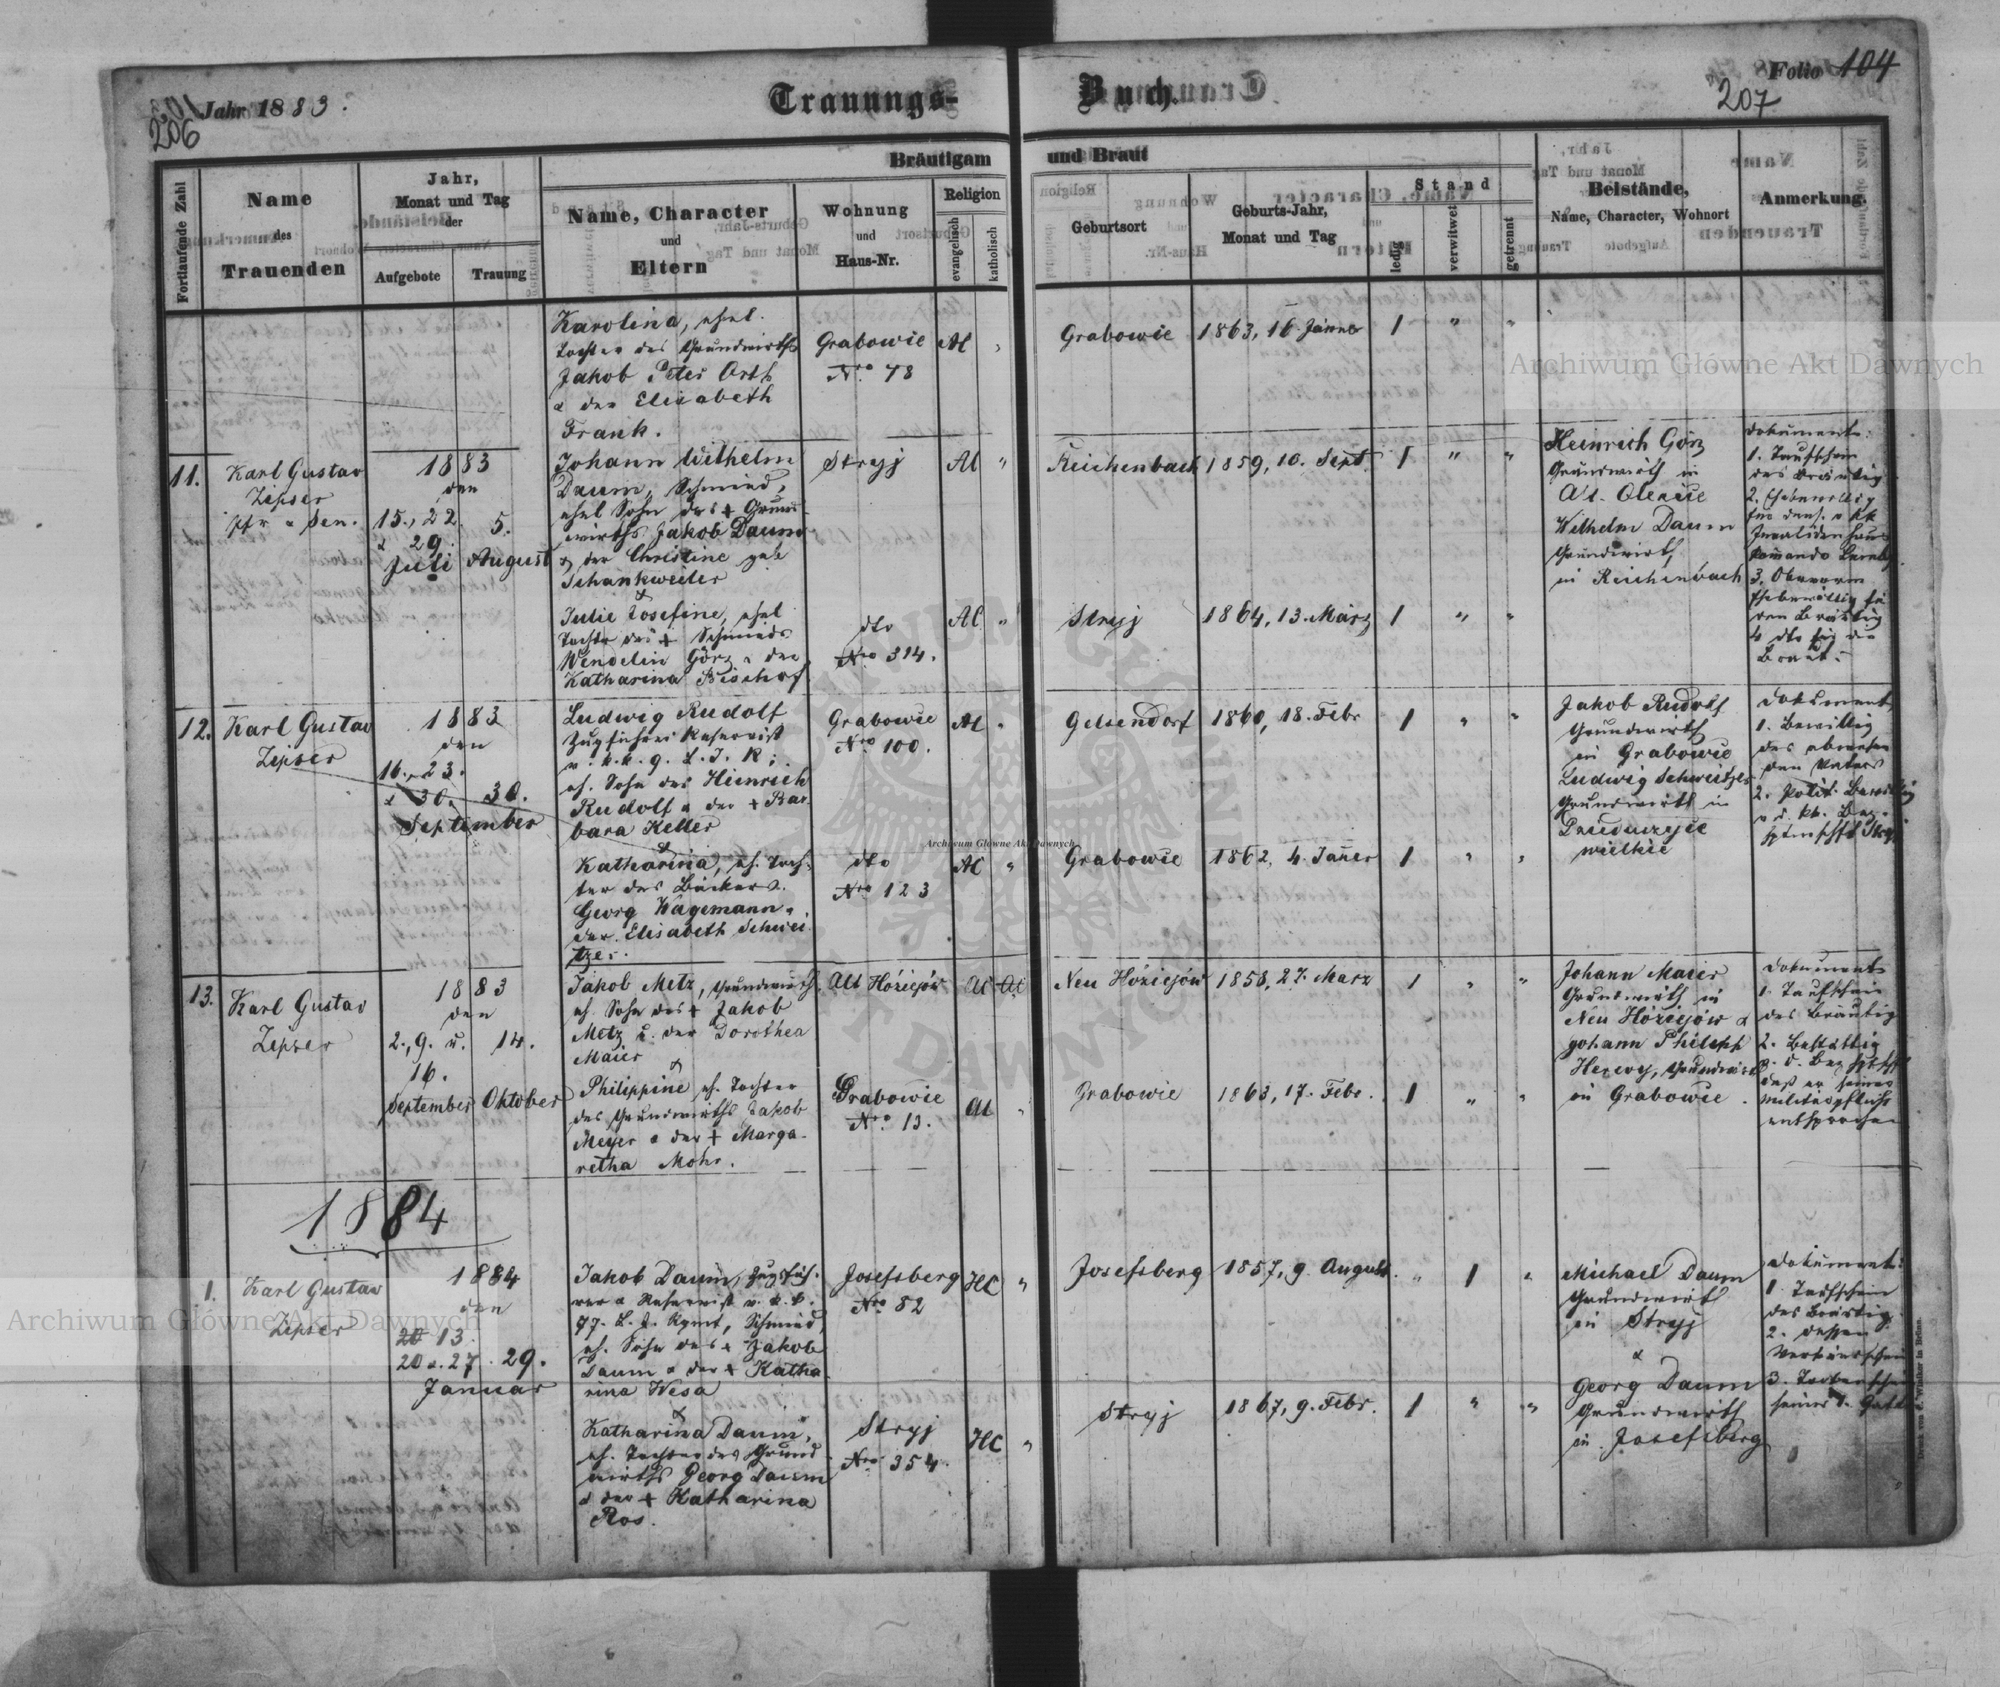 Jahr 1883.
206
Trauungs-
Buch.
Folio 104
207
Fortlaufende Zahl
Name
des
Trauenden
Jahr,
Monat und Tag
der
Aufgebote
Trauung
Bräutigam
und Braut
Name, Character
und
Eltern
Wohnung
und
Haus-Nr.
Religion
evangelisch
katholisch
Geburtsort
Geburts-Jahr,
Monat und Tag
Stand
ledig
verwitwet
getrennt
Beistände,
Name, Character, Wohnort
Anmerkung.
Karolina, ehel.
Tochter des Grundwirths
Jakob Peter Orth
& der Elisabeth
Frank.
Grabowie
Nro 78
AC
Grabowie
1863, 16. Jänner
1 " "
11.
Karl Gustav
Zipser
Pfr & Sen.
1883
den
15., 22.
& 29.
Juli
5.
August
Johann Wilhelm
Daum, Schmied,
ehel Sohn des + Grund-
wirths Jakob Daum
& der Christine geb
Schankweiler
&
Stryj
AC "
Reichenbach
1859, 10. Sept.
1 " "
Heinrich Görz
Grundwirth in
Wilhelm Daum
Grundwirth
in Reichenbach
Dokumente:
1. Taufschein
des Bräutig
Julie Josefine, ehel
Tochter des + Schmieds
Wendelin Görz & der
Katharina Bischof
dto
Nro 314.
AC "
Stryj
1864, 13. März
1 " "
12.
Karl Gustav
Zipser
1883
den
16., 23.
& 30.
September
30.
Ludwig Rudolf
Zugführer Reservist
eh. Sohn des Heinrich
Rudolf & der + Bar-
bara Keller
&
Grabowie
Nro 100.
AC "
Gelsendorf
1860, 18. Febr
1 " "
Jakob Rudolf
Grundwirth
in Grabowie
Ludwig Schweitzer
Grundwirth in
wielkie
Dokument
1. Bewillig
des abwesen
den Vaters
Katharina, eh. Toch-
ter des Bäckers
Georg Wagemann &
der Elisabeth Schwei-
tzer.
dto
Nro 123
AC "
Grabowie
1862, 4. Jäner
1 " "
13.
Karl Gustav
Zipser
1883
den
2., 9. u.
16.
September
14.
Oktober
Jakob Metz, Grundwirth
eh. Sohn des + Jakob
Metz u. der Dorothea
Maier
&
Alt Hóziejów
AC
Neu Hóziejów
1858, 27. März
1 " "
Johann Maier
Grundwirth in
Neu Hóziejów &
Johann Philipp
Grundwirth
in Grabowie
Dokument
1. Taufschein
des Bräutig
Philippine, eh. Tochter
des Grundwirths Jakob
Meyer & der + Marga-
retha Mohr.
Grabowie
Nro 13.
AC "
Grabowie
1863, 17. Febr.
1 " "
1884
1.
Karl Gustav
Zipser
1884
den
13.
20 & 27.
Januar
29.
Jakob Daum, Zugsfüh-
rer & Reservist v. k. k.
77. L. I. Rgmt, Schmied,
eh. Sohn des + Jakob
Daum & der + Katha-
rina Wesa
&
Josefsberg
Nro 82
HC "
Josefsberg
1857, 9. August.
" 1 "
Michael Daum
Grundwirth
in Stryj
&
Georg Daum
Grundwirth
in Josefsberg
Dokument:
1. Taufschein
des Bräutig.
2. dessen
Katharina Daum,
eh. Tochter des Grund-
wirths Georg Daum
& der + Katharina
Ros.
Stryj
Nro 354.
HC "
Stryj
1867, 9. Febr.
1 " "
Archiwum Główne Akt Dawnych
Archiwum Główne Akt Dawnych
Archiwum Główne Akt Dawnych